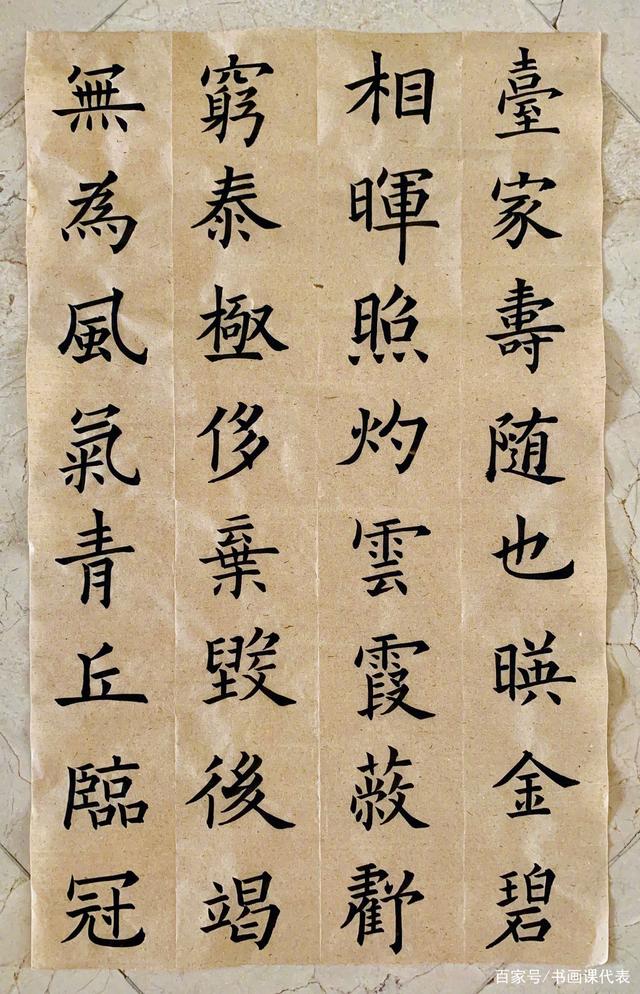 臺家壽随也暎金碧
相暉照灼雲霞蔽虧
窮泰極侈棄毀後竭
無為風氣青丘臨冠
百家号/书画课代表